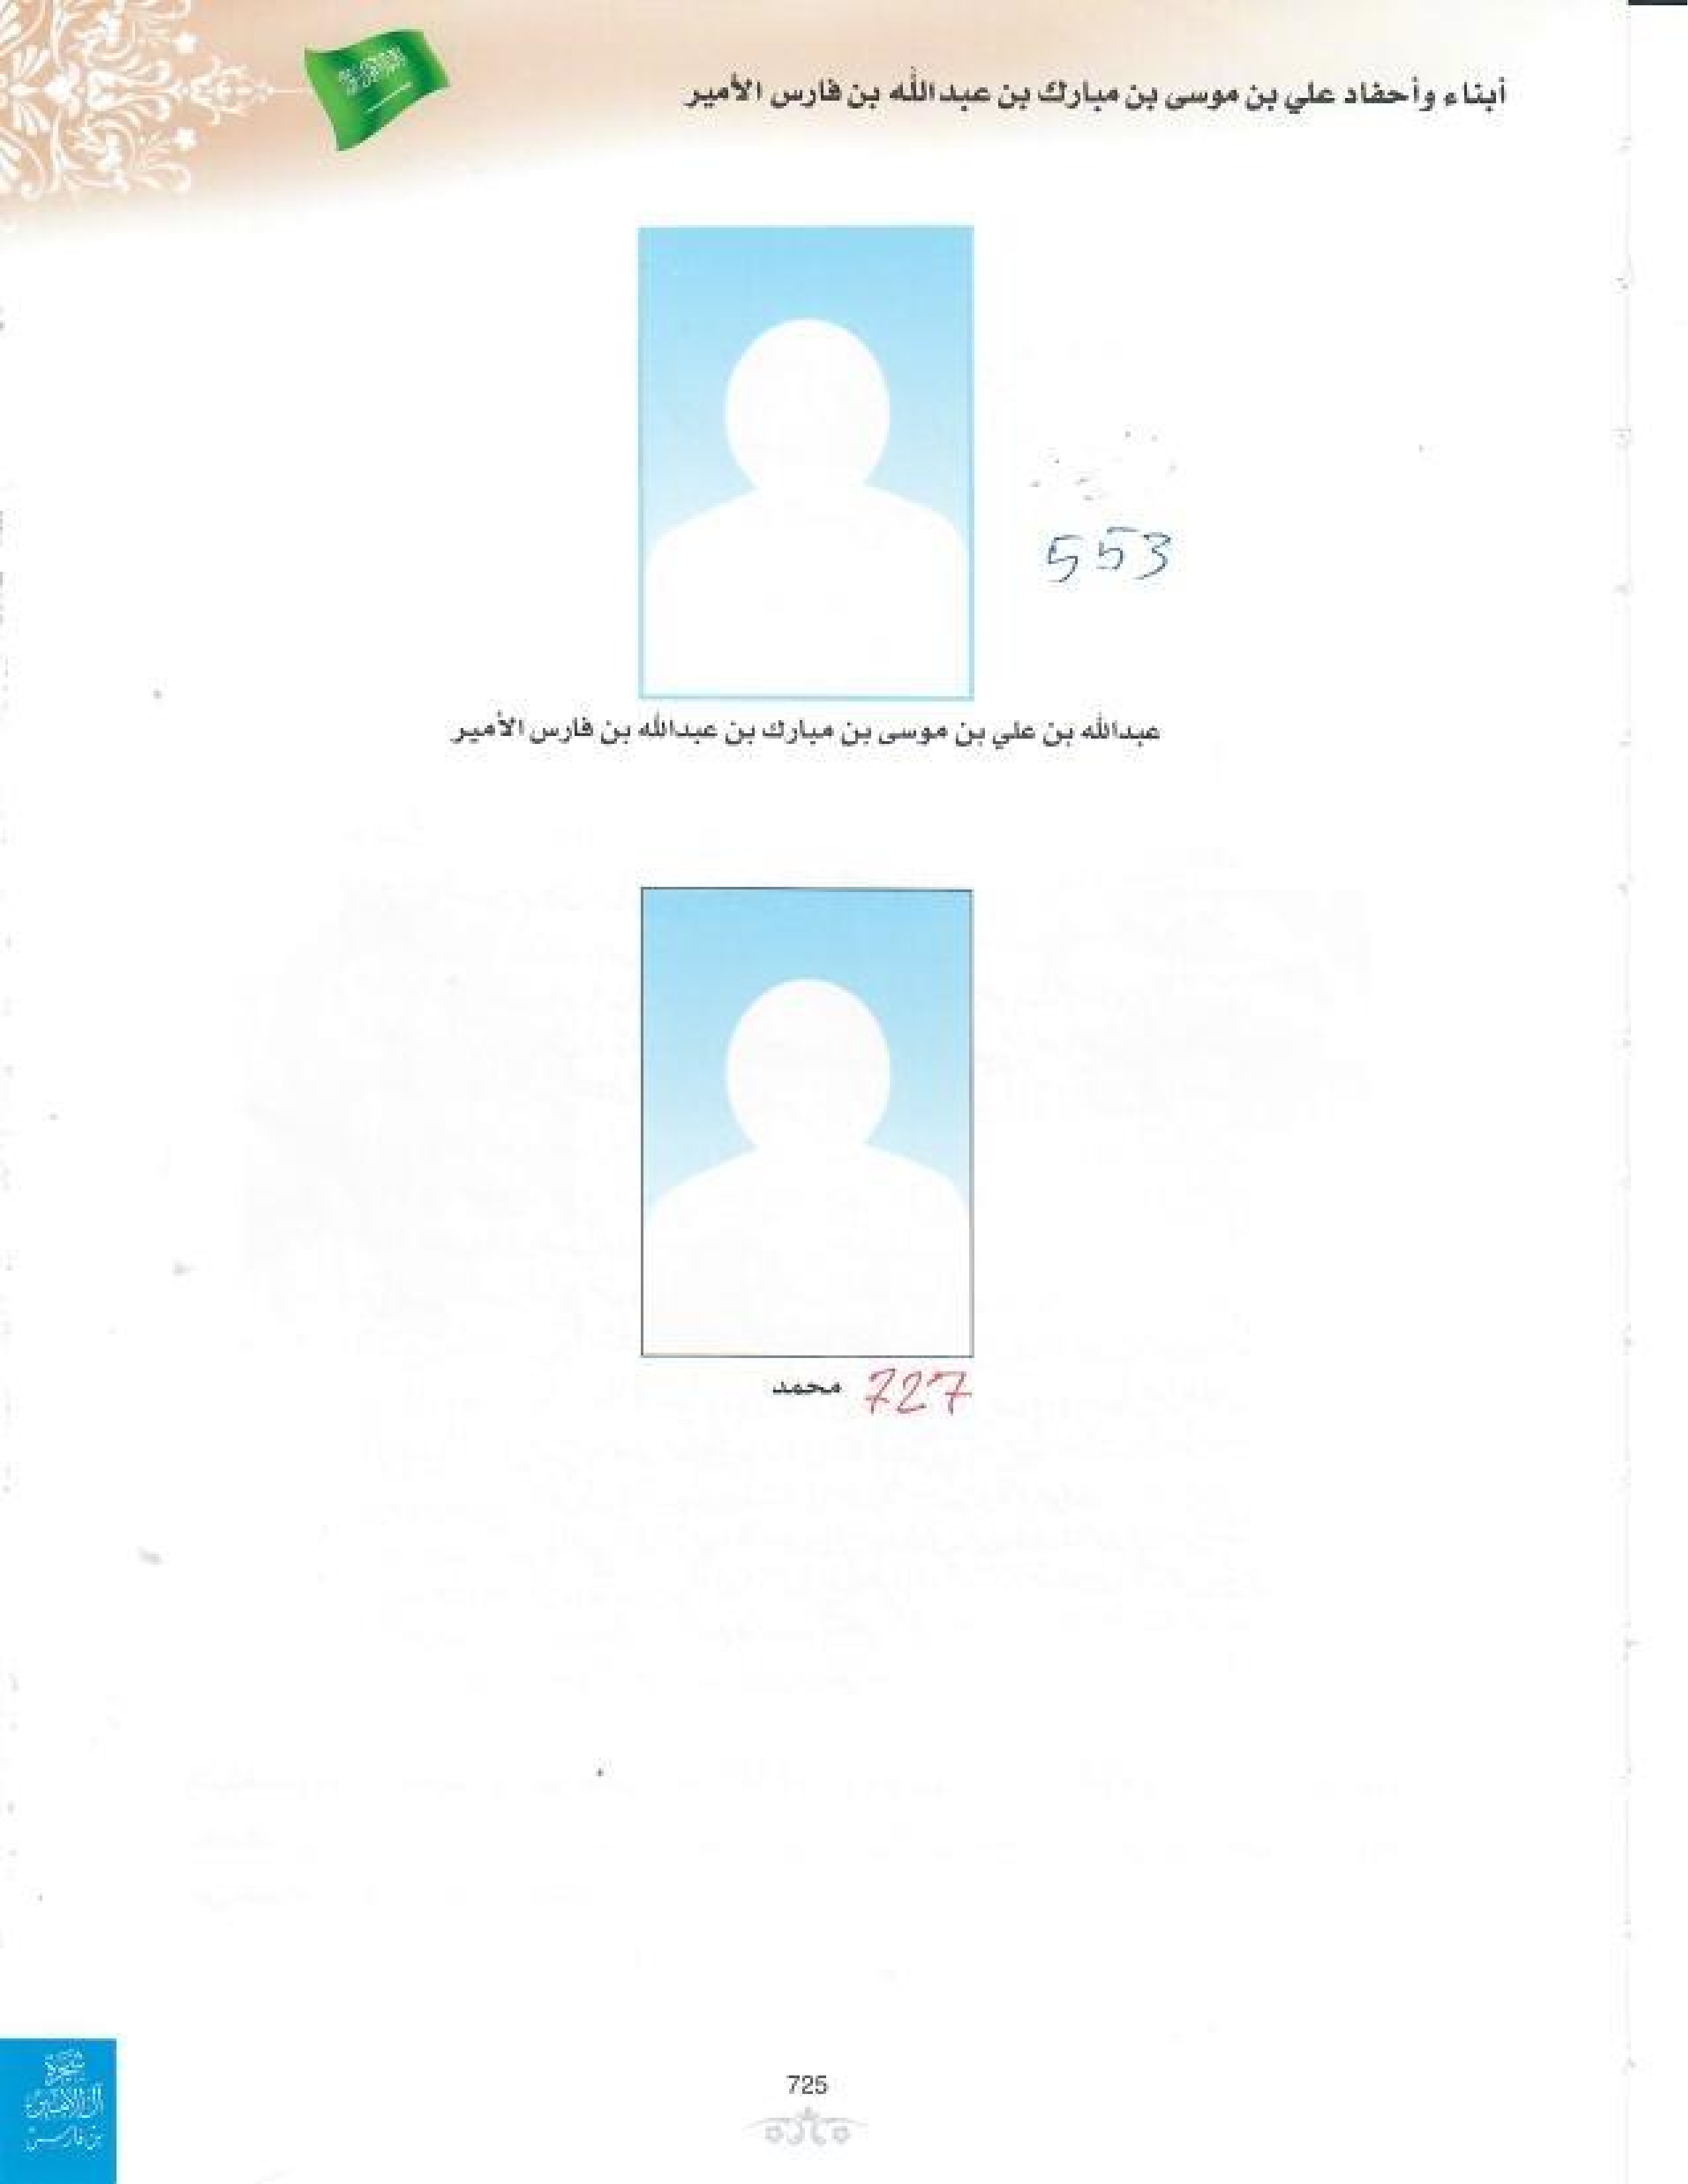 أبناء وأحفاد علي بن موسى بن مبارك بن عبدالله بن فارس الأمير
553
عبدالله بن علي بن موسى بن مبارك بن عبدالله بن فارس الأمير
محمد 727
725
شجرة
آل الأمير
بن فارس